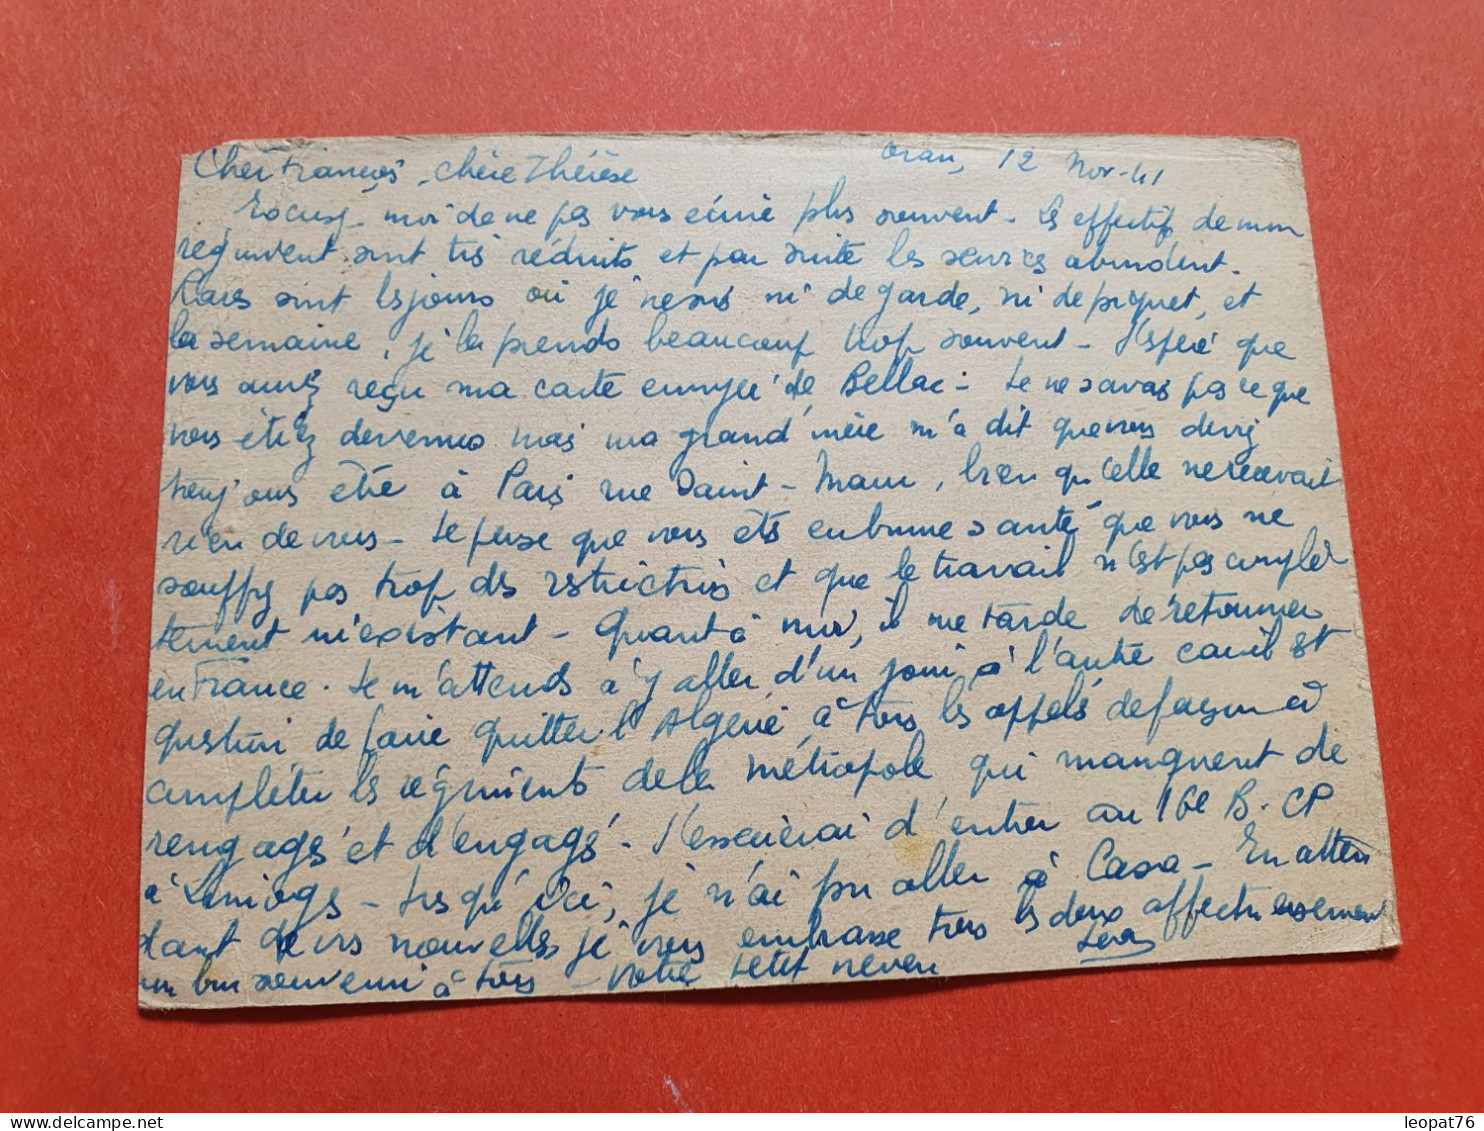 Oran, 12 Nov. 41
Cher François, chère Thérèse
Excusez-moi de ne pas vous écrire plus souvent. Les effectifs de mon
régiment sont très réduits et par suite les services abondent.
Rares sont les jours où je ne suis ni de garde, ni de piquet, et
la semaine, je la prends beaucoup trop souvent. J'espère que
vous avez reçu ma carte envoyée de Bellac. Je ne savais pas ce que
vous étiez devenus mais ma grand'mère m'a dit que vous deviez
toujours être à Paris rue Saint-Maur, bien qu'elle ne recevait
rien de vous. Je pense que vous êtes en bonne santé que vous ne
souffrez pas trop des restrictions et que le travail n'est pas complè
tement inexistant. Quant à moi, il me tarde de retourner
en France. Je m'attends à y aller d'un jour à l'autre car il est
question de faire quitter l'Algérie à tous les appelés de façon à
compléter les régiments de la métropole qui manquent de
rengagés et d'engagés. J'essaierai d'entrer au 16e B.CP
à Limoges. Jusqu'ici, je n'ai pu aller à Casa. En atten
dant de vos nouvelles je vous embrasse tous les deux affectueusement
un bon souvenir à tous. Votre petit neveu
leopat76